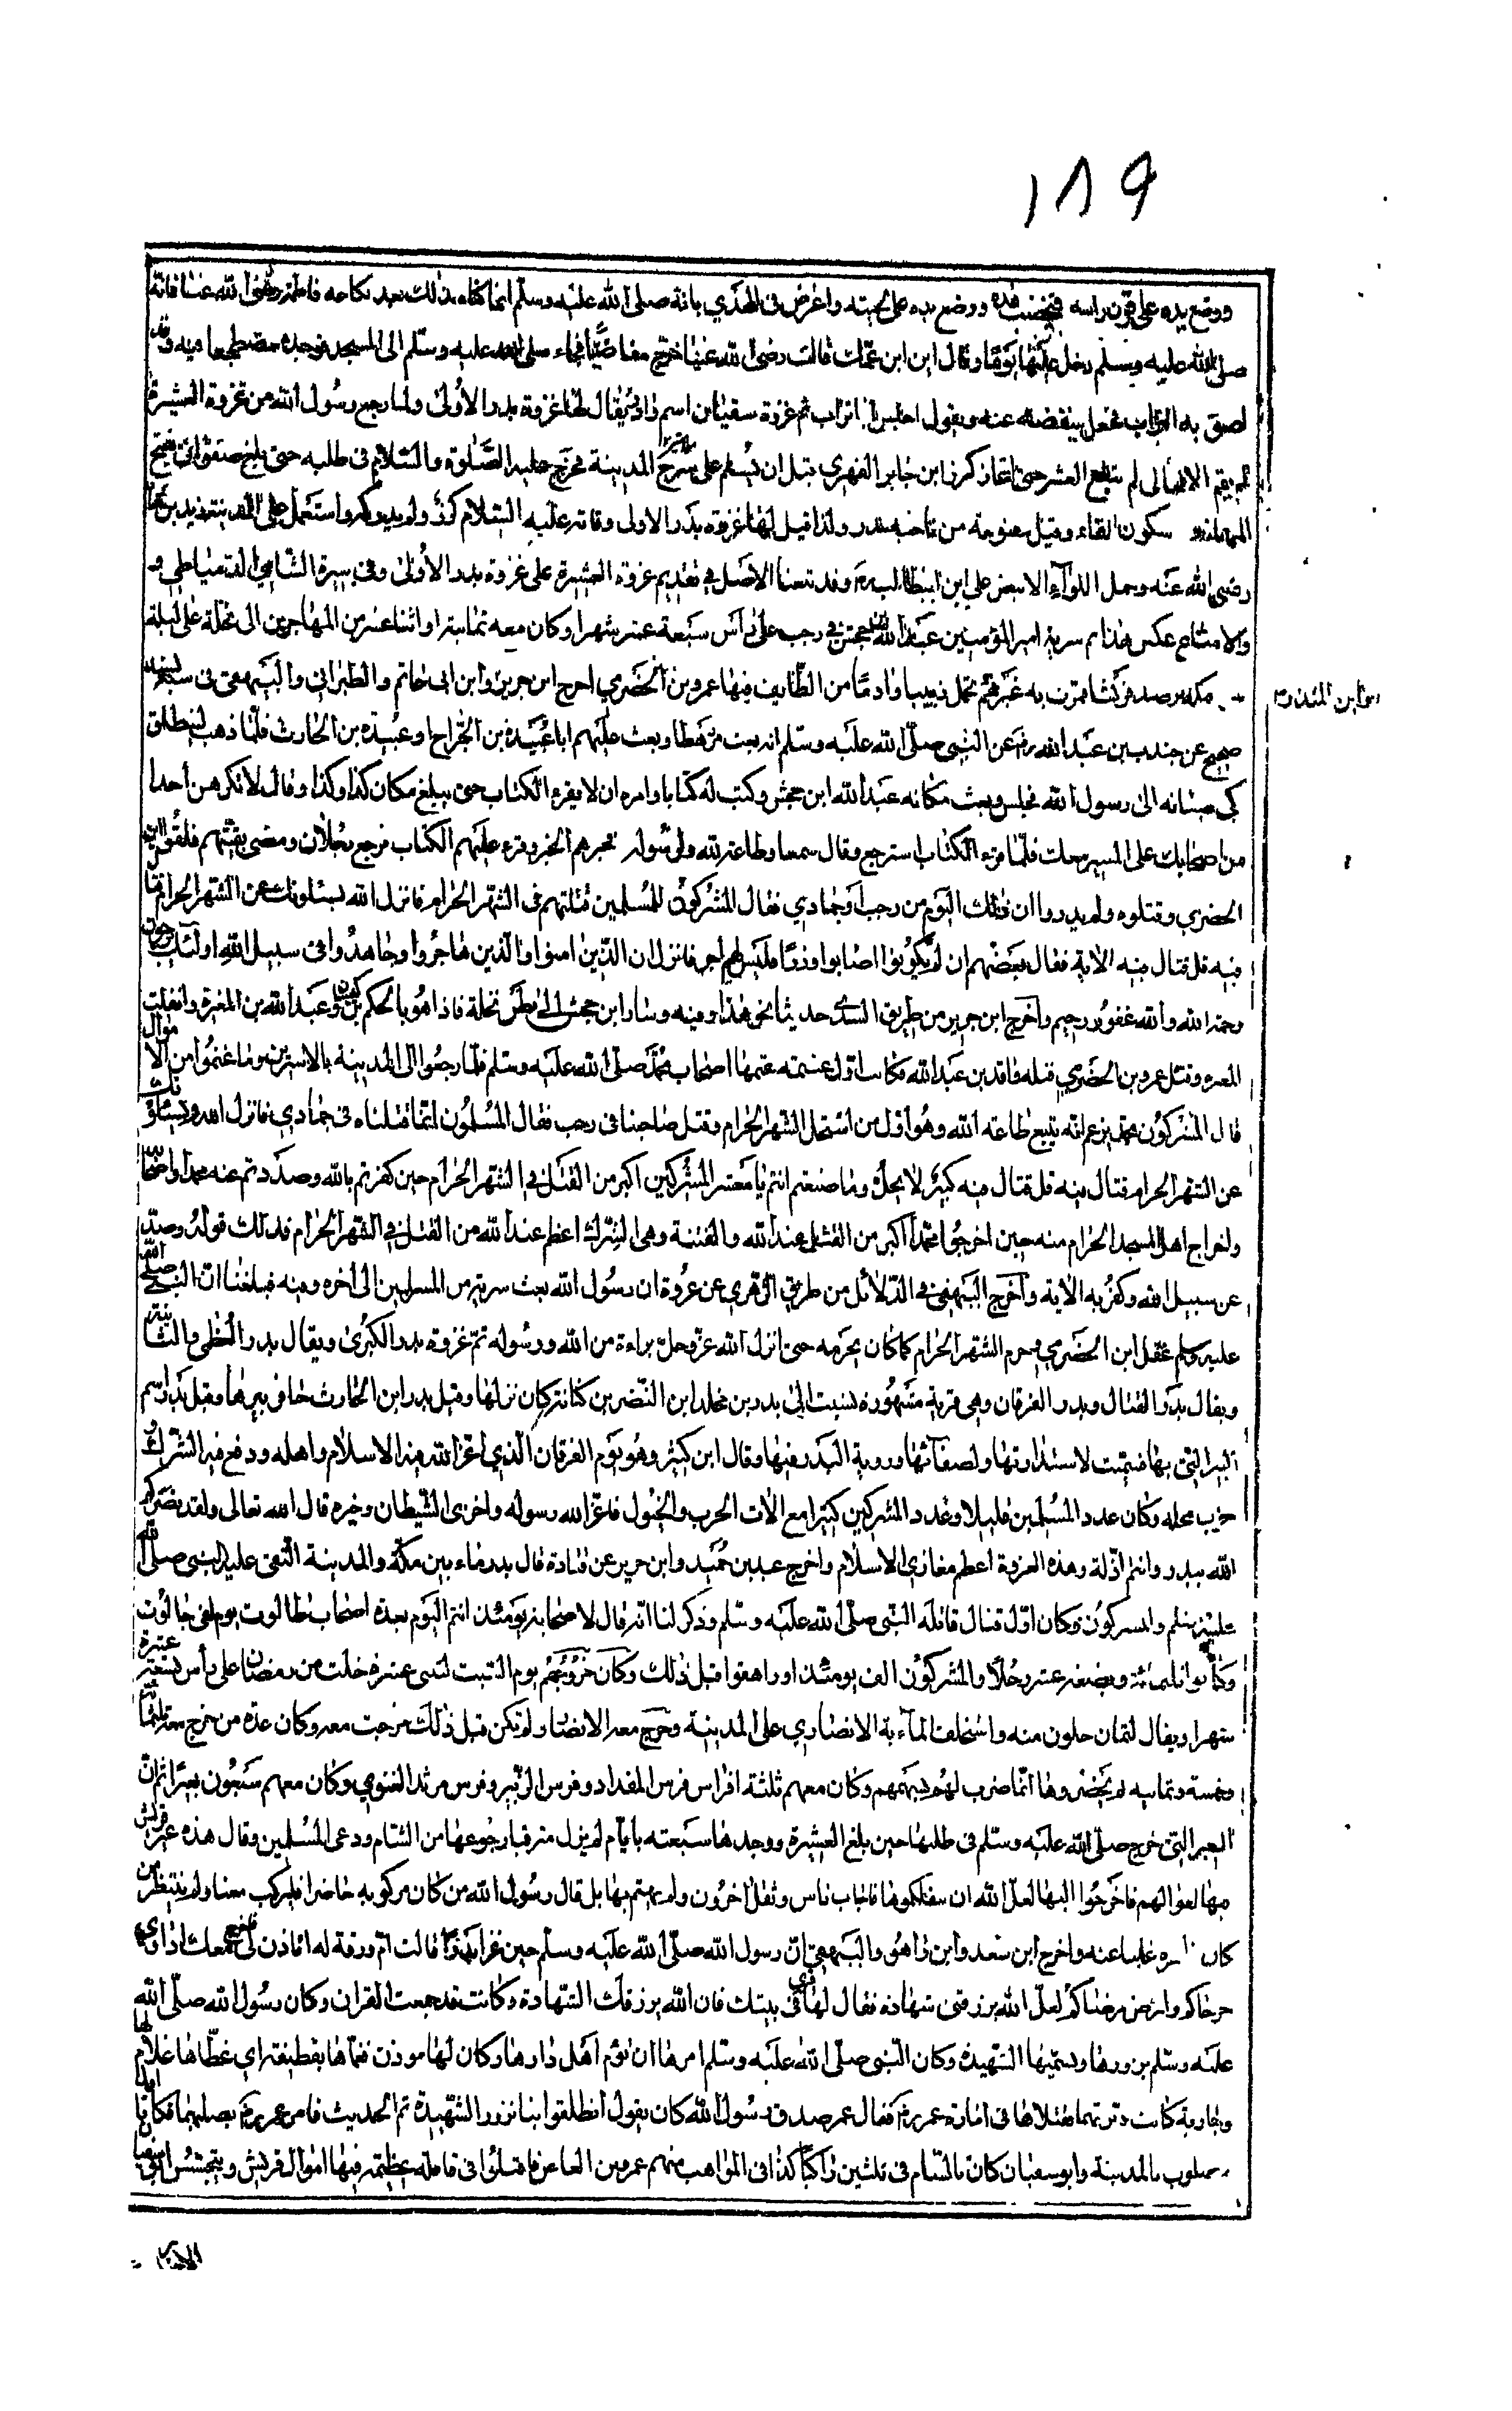 ١٨٩
ووضع يده على قرن راسه فتخضب هذه ووضع يده على لحيته واعرض في الهدي بانه صلى الله عليه وسلم انما كناه بذلك بعد نكاحه فاطمة رضي الله عنها فانه
صلى الله عليه وسلم دخل عليها يوما وقال اين ابن عمك قالت رضي الله عنها خرج مغاضبا فجاء صلى الله عليه وسلم الى المسجد فوجده مضطجعا فيه وقد
لصق به التراب فجعل ينفضه عنه ويقول اجلس ابا تراب ثم غزوة سفوان اسم واد يقال لها غزوة بدر الأولى ولما رجع رسول الله من غزوة العشيرة
لم يقم الا ليالي لم تبلغ العشر حتى اغار كرز ابن جابر الفهري على سرح المدينة فخرج عليه الصلوة والسلام في طلبه حتى بلغ سفوان بفتح
المهملة سكون الفاء وقيل من ناحية بدر ولذا قيل لها غزوة بدر الاولى وفاته عليه السلام كرز ولم يدركه واستعمل على المدينة زيد بن
رضي الله عنه وحمل اللوآء الابيض علي ابن ابيطالب رم وقد تبعنا الاصل في تقديم غزوة العشيرة على غزوة بدر الأولى وفي سيرة الشامي الدمياطي و
والامتاع عكس هذا ثم سرية امير المؤمنين عبد الله بن جحش في رجب على رأس سبعة عشر شهرا وكان معه ثمانية او اثنا عشر من المهاجرين الى نخلة على ليلة
مكة يرصد قريشا فمرت به عيرهم تحمل زبيبا وادما من الطايف فيها عمرو بن الحضرمي اخرج ابن جرير وابن ابي حاتم والطبراني والبيهقي في سننه بسند
وابن المنذر
صحيح عن جندب بن عبد الله رم عن النبي صلى الله عليه وسلم انه بعث رهطا وبعث عليهم ابا عبيدة بن الجراح او عبيدة بن الحارث فلما ذهب لينطلق
بكى صبابة الى رسول الله فجلس وبعث مكانه عبد الله ابن جحش وكتب له كتابا وامره ان لا يقرء الكتاب حتى يبلغ مكان كذا وكذا وقال لا تكرهن احدا
من اصحابك على المسير معك فلما قرء الكتاب استرجع وقال سمعا وطاعة لله ولرسوله فخبرهم الخبر وقرء عليهم الكتاب فرجع رجلان ومضى بقيتهم فلقوا ابن
الحضرمي وقتلوه ولم يدروا ان ذلك اليوم من رجب او جمادي فقال المشركون للمسلمين قتلتم في الشهر الحرام فانزل الله يسئلونك عن الشهر الحرام قتال
فيه قل قتال فيه الاية فقال بعضهم ان لم يكونوا اصابوا وزرا فليس لهم اجر فانزل ان الذين امنوا والذين هاجروا وجاهدوا في سبيل الله اولئك يرجون
رحمة الله والله غفور رحيم واخرج ابن جرير من طريق السدي حديثا نحو هذا وفيه وسار ابن جحش الى بطن نخلة فاذا هو بالحكم بن كيسان وعبد الله بن المغيرة وانفلت
المغيرة وقتل عمرو بن الحضرمي قتله واقد بن عبد الله فكانت اول غنيمة غنمها اصحاب محمد صلى الله عليه وسلم فلما رجعوا الى المدينة بالاسيرين وما غنموا من الاموال
قال المشركون محمد يزعم انه يتبع طاعة الله وهو اول من استحل الشهر الحرام وقتل صاحبنا في رجب فقال المسلمون انما قتلناه في جمادي فانزل الله ويسئلونك
عن الشهر الحرام قتال فيه قل قتال فيه كبير لا يحل وما صنعتم انتم يا معشر المشركين اكبر من القتل في الشهر الحرام حين كفرتم بالله وصددتم عنه محمدا واصحابه
واخراج اهل المسجد الحرام منه حين اخرجوا محمدا اكبر من القتل عند الله والفتنة وهي الشرك اعظم عند الله من القتل في الشهر الحرام فذلك قوله وصد
عن سبيل الله وكفر به الاية واخرج البيهقي في الدلائل من طريق الزهري عن عروة ان رسول الله بعث سرية من المسلمين الى اخره وفيه فبلغنا ان النبي صلى الله
عليه وسلم عقل ابن الحضرمي وحرم الشهر الحرام كما كان يحرمه حتى انزل الله عز وجل براءة من الله ورسوله ثم غزوة بدر الكبرى ويقال بدر العظمى والثانية
ويقال بدر القتال وبدر الفرقان وهي قرية مشهورة نسبت الى بدر بن مخلد ابن النضر بن كنانة كان نزلها وقيل بدر ابن الحارث حافر بيرها وقيل بدر اسم
البير التي بها سميت لاستدارتها ولصفآئها ورؤية البدر فيها وقال ابن كثير وهو يوم الفرقان الذي اعز الله فيه الاسلام واهله ودمغ فيه الشرك و
خرب محله وكان عدد المسلمين قليلا وعدد المشركين كثيرا مع آلات الحرب والخيول فاعز الله رسوله واخزى الشيطان وخيره قال الله تعالى ولقد نصركم
الله ببدر وانتم اذلة وهذه الغزوة اعظم مغازي الاسلام واخرج عبد بن حميد وابن جرير عن قتادة قال بدر ماء بين مكة والمدينة التقى عليه النبي صلى الله
عليه وسلم والمشركون وكان اول قتال قاتله النبي صلى الله عليه وسلم وذكر لنا انه قال لاصحابه يومئذ انتم اليوم بعدة اصحاب طالوت يوم لقي جالوت
وكانوا ثلثمائة وبضعة عشر رجلا والمشركون الف يومئذ او راهقوا قبل ذلك وكان خروجهم يوم السبت لثنتي عشرة خلت من رمضان على رأس تسعة عشرة
شهرا ويقال لثمان خلون منه واستخلف لبابة الانصاري على المدينة وخرج معه الانصار ولم يكن قبل ذلك خرجت معه وكان عدة من خرج معه ثلثمائة
وخمسة وثمانية لم يحضروها انما ضرب لهم بسهمهم وكان معهم ثلثة افراس فرس المقداد وفرس الزبير وفرس مرثد الغنوي وكان معهم سبعون بعيرا ثم ان
العير التي خرج صلى الله عليه وسلم في طلبها حين بلغ العشيرة ووجدها سبقته بايام لم يزل مترقبا رجوعها من الشام ودعى المسلمين وقال هذه عير قريش
فيها اموالهم فاخرجوا اليها لعل الله ان ينفلكموها فاجاب ناس وثقل اخرون ولم يهتم بها بل قال رسول الله من كان مركوبه حاضرا فليركب معنا ولم ينتظر من
كان غائبا عنه واخرج ابن سعد وابن راهويه والبيهقي ان رسول الله صلى الله عليه وسلم حين غزا بدرا قالت ام ورقة له اتاذن لي فاخرج معك اداوي
جرحاكم وامرض مرضاكم لعل الله يرزقني شهادة فقال لها قري في بيتك فان الله يرزقك الشهادة وكانت قد جمعت القران وكان رسول الله صلى الله
عليه وسلم يزورها ويسميها الشهيدة وكان النبي صلى الله عليه وسلم امرها ان تؤم اهل دارها وكان لها موذن فغماها بقطيفة اي غطاها غلام لها
وجارية كانت دبرتهما فقتلاها في امارة عمر رم فقال عمر صدق رسول الله كان يقول انطلقوا بنا نزور الشهيدة تم الحديث فامر عمر رم بصلبهما فكانا اول
مصلوب بالمدينة وابو سفيان كان بالشام في ثلثين راكبا كذا في المواهب منهم عمرو بن العاص فاقبلوا في قافلة عظيمة فيها اموال قريش ويتجسس